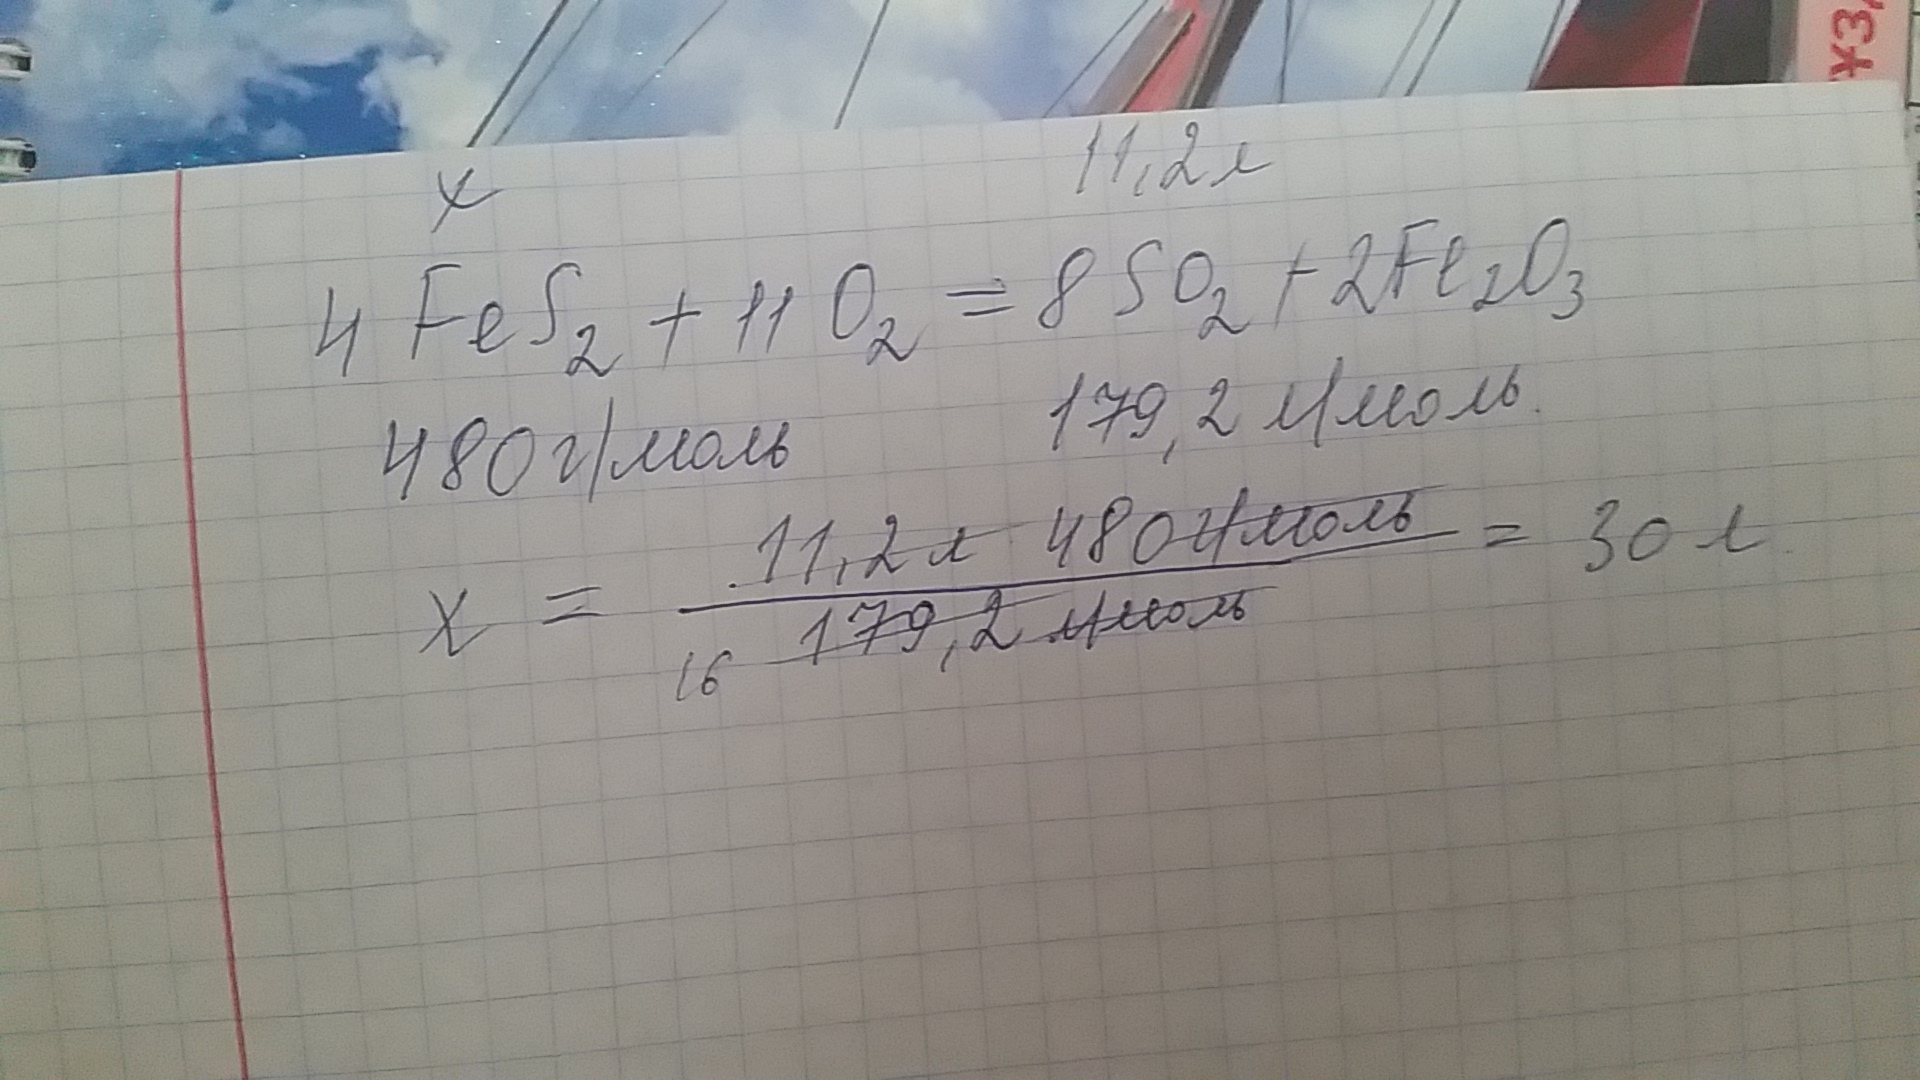 ҰЗ
x 11,2 л
4 FeS₂ + 11 O₂ = 8 SO₂ + 2 Fe₂O₃
480 г/моль 179,2 л/моль.
x = 11,2 л 480 г/моль / 179,2 л/моль = 30 л
16